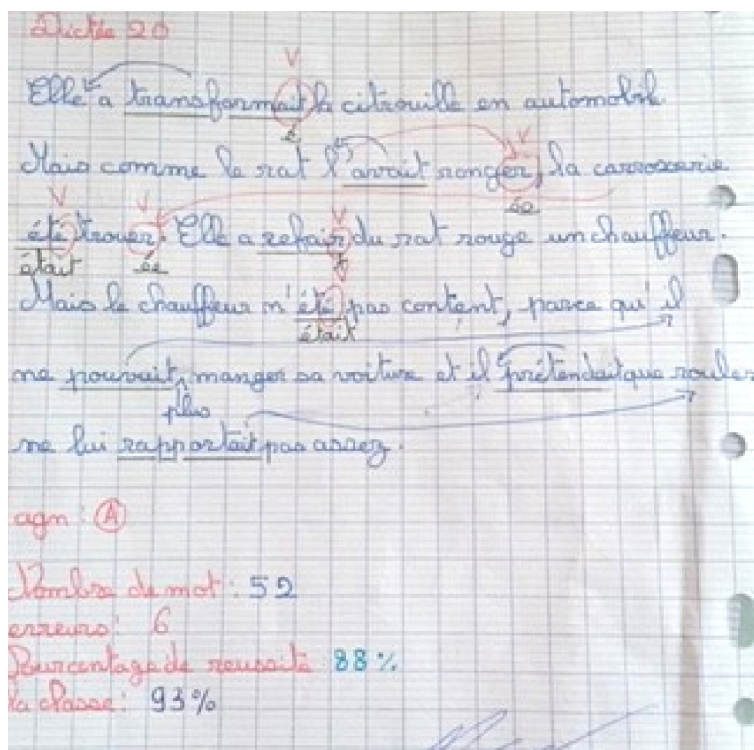 Dictée 20
V
Elle a transformait la citrouille en automobile.
é
V
Mais comme le rat l'avait ronger, la carrosserie
V V ée V
été trouer. Elle a refait du rat rouge un chauffeur.
était ée t
Mais le chauffeur n'été pas content, parce qu'il
était
ne pouvait manger sa voiture et il prétendait que rouler
plus
ne lui rapportait pas assez.
agn : A
Nombre de mot : 52
erreurs : 6
Pourcentage de réussite : 88 %
la classe : 93 %